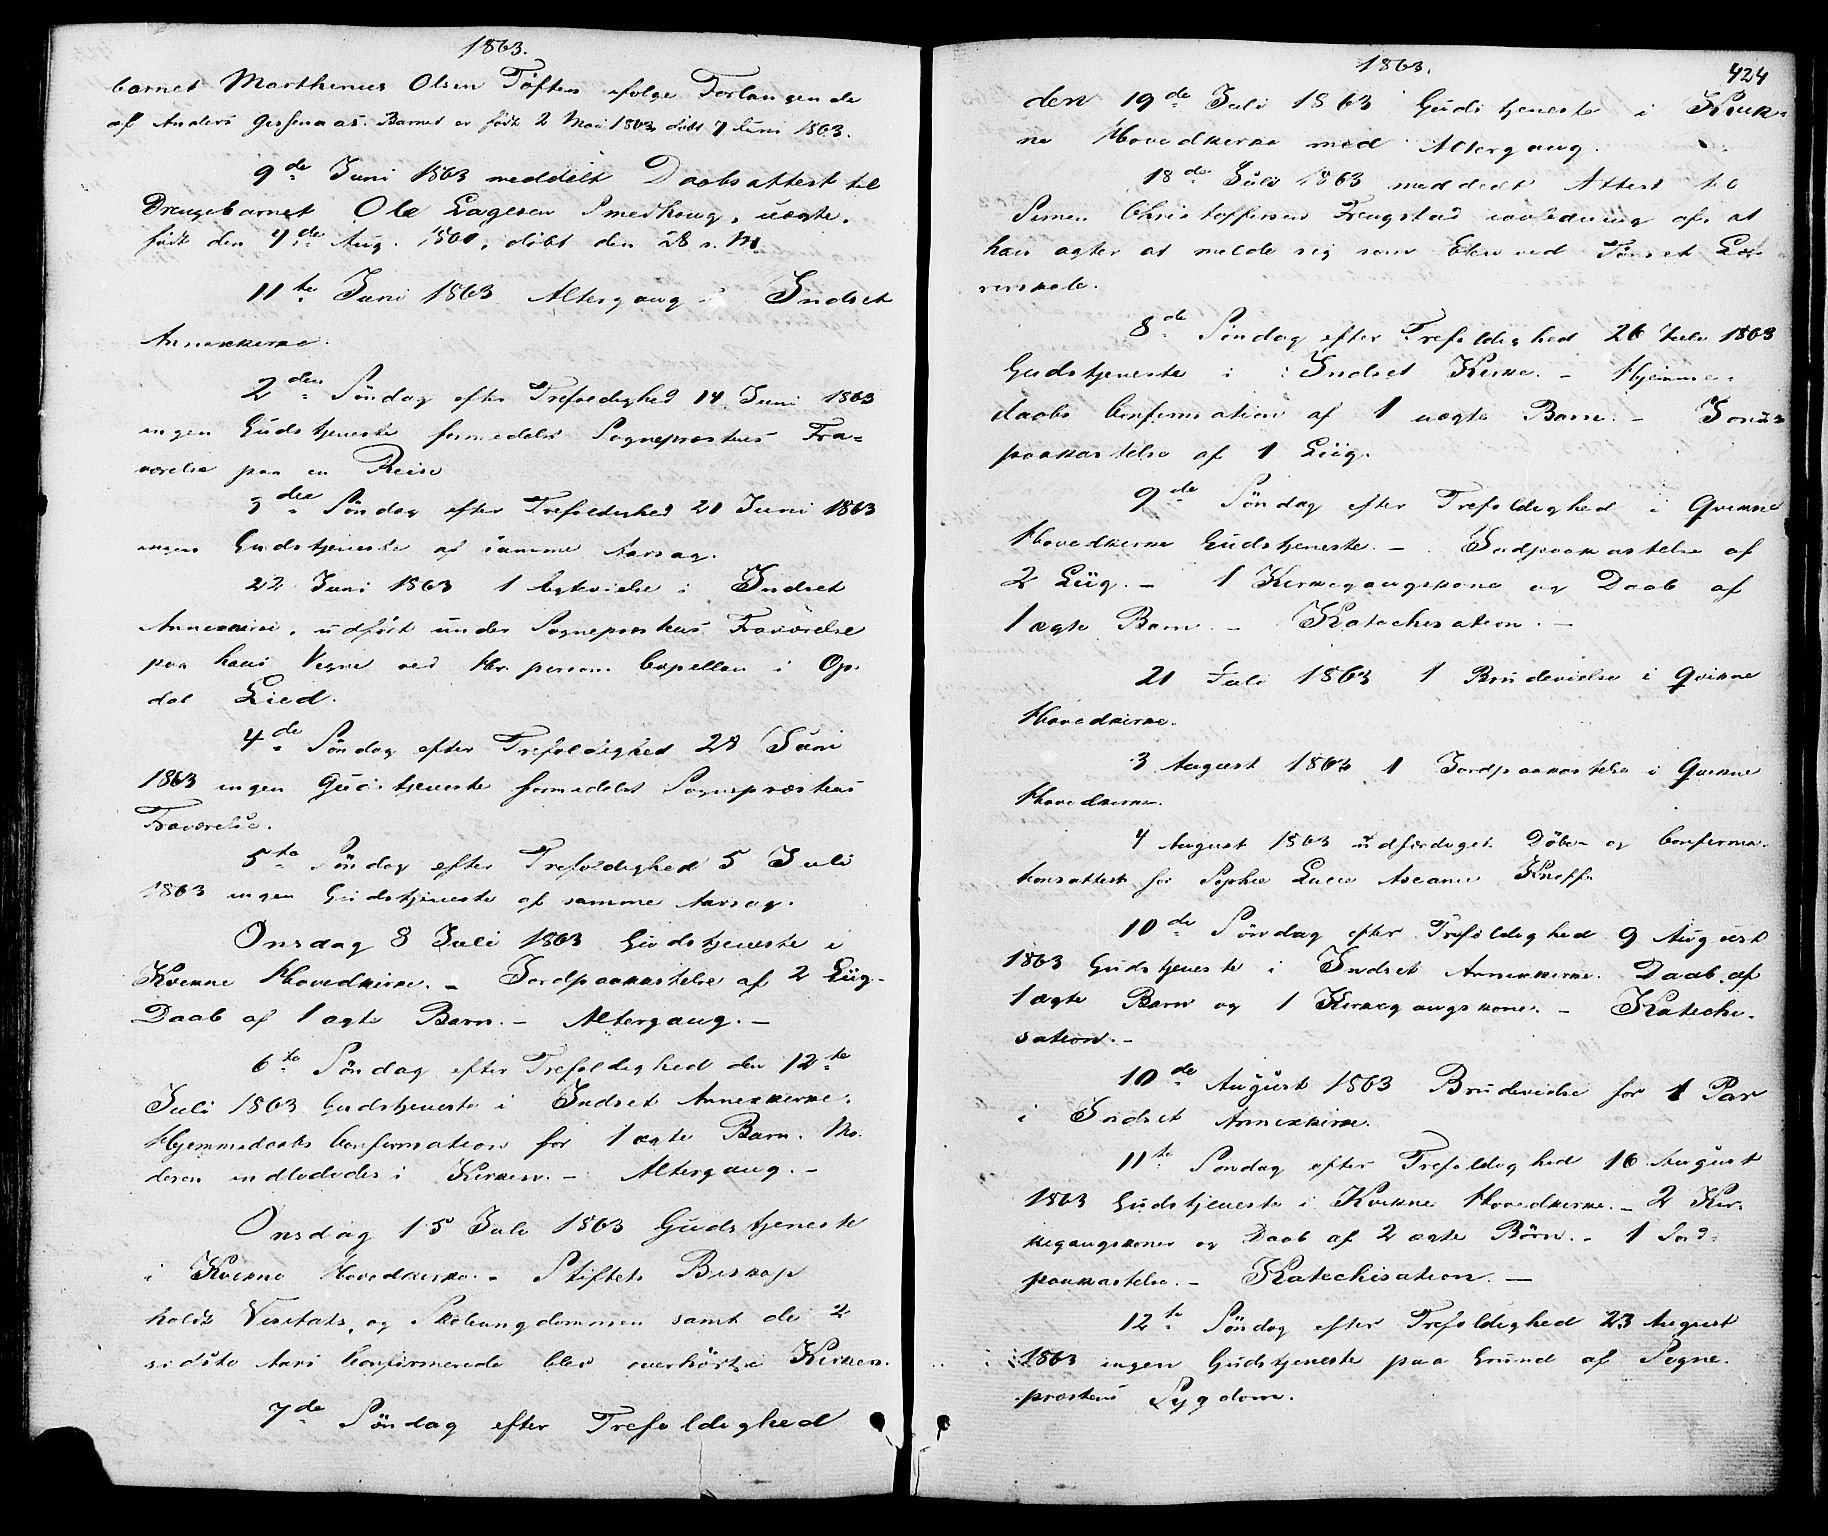 1863.
barnet Marthinus Olsen Tøften efølge Forlangende
af Anders Barnet er født 2 Mai 1863, døbt 7 Juni 1863.
9de Juni 1863 meddelt Daabsattest til
Drengebarnet Ole Lagesen Smedhaug, uægte,
født den 7de Aug. 1860, døbt den 28 s. M.
11te Juni 1863 Altergang i Indset
Annexkirke.
2den Søndag efter Trefoldighed 14 Juni 1863
ingen Gudstjeneste formedelst Sognepræstens Fra=
værelse paa en Reise
3die Søndag efter Trefoldighed 21 Juni 1863
ingen Gudstjeneste af samme Aarsag.
22 Juni 1863 1 Egtevielse i Indset
Annexkirke, udført under Sognepræstens Fraværelse
paa hans Vegne ved Hr. person. Capellan i Op-
dal Lied.
4de Søndag efter Trefoldighed 28 Juni
1863 ingen Gudstjeneste formedelst Sognepræstens
Fraværelse.
5te Søndag efter Trefoldighed 5 Juli
1863 ingen Gudstjeneste af samme Aarsag.
Onsdag 8 Juli 1863 Gudstjeneste i
Kvikne Hovedkirke. - Jordpaakastelse af 2 Liig.
Daab af 1 ægte Barn. - Altergang. -
6te Søndag efter Trefoldighed den 12te
Juli 1863 Gudstjeneste i Indset Annexkirke.
Hjemmedaabs Confirmation for 1 ægte Barn. Mo-
deren indledes i Kirken. - Altergang. -
Onsdag 15 Juli 1863 Gudstjeneste
i Kvikne Hovedkirke. - Stiftets Biskop
holdt Visitats, og Skoleungdommen samt de 2
sidste Aars Confirmerede blev overhørt i Kirken.
7de Søndag efter Trefoldighed
1863.
424
den 19de Juli 1863 Gudstjeneste i Kvik-
ne Hovedkirke med Altergang.
18de Juli 1863 meddelt Attest til
Simen Christoffersen Frengstad i anledning af, at
han agter at melde sig som Elev ved Tønset Læ-
rerskole.
8de Søndag efter Trefoldighed 26 Juli 1863
Gudstjeneste i Indset Kirke. - Hjemme-
daabs Confirmation af 1 uægte Barn. - Jord-
paakastelse af 1 Liig.
9de Søndag efter Trefoldighed i Qvikne
Hovedkirke Gudstjeneste. - Jordpaakastelse af
2 Liig. - 1 Kirkegangskone og Daab af
1 ægte Barn. - Katechisation. -
21 Juli 1863 1 Brudevielse i Qvikne
Hovedkirke.
3 August 1863 1 Jordpaakastelse i Qvikne
Hovedkirke.
4 August 1863 udfærdiget Døbe- og Confirma-
tionsattest for Sophie Lucie Kneff.
10de Søndag efter Trefoldighed 9 August
1863 Gudstjeneste i Indset Annexkirke. Daab af
1 ægte Barn og 1 Kirkegangskone. - Katechi-
sation. -
10de August 1863 Brudevielse for 1 Par
i Indset Annexkirke.
11te Søndag efter Trefoldighed 16 August
1863 Gudstjeneste i Kvikne Hovedkirke. - 2 Kir-
kegangskoner og Daab af 2 ægte Børn. - 1 Jord-
paakastelse. - Katechisation. -
12te Søndag efter Trefoldighed 23 August
1863 ingen Gudstjeneste paa Grund af Sogne-
præstens Sygdom.